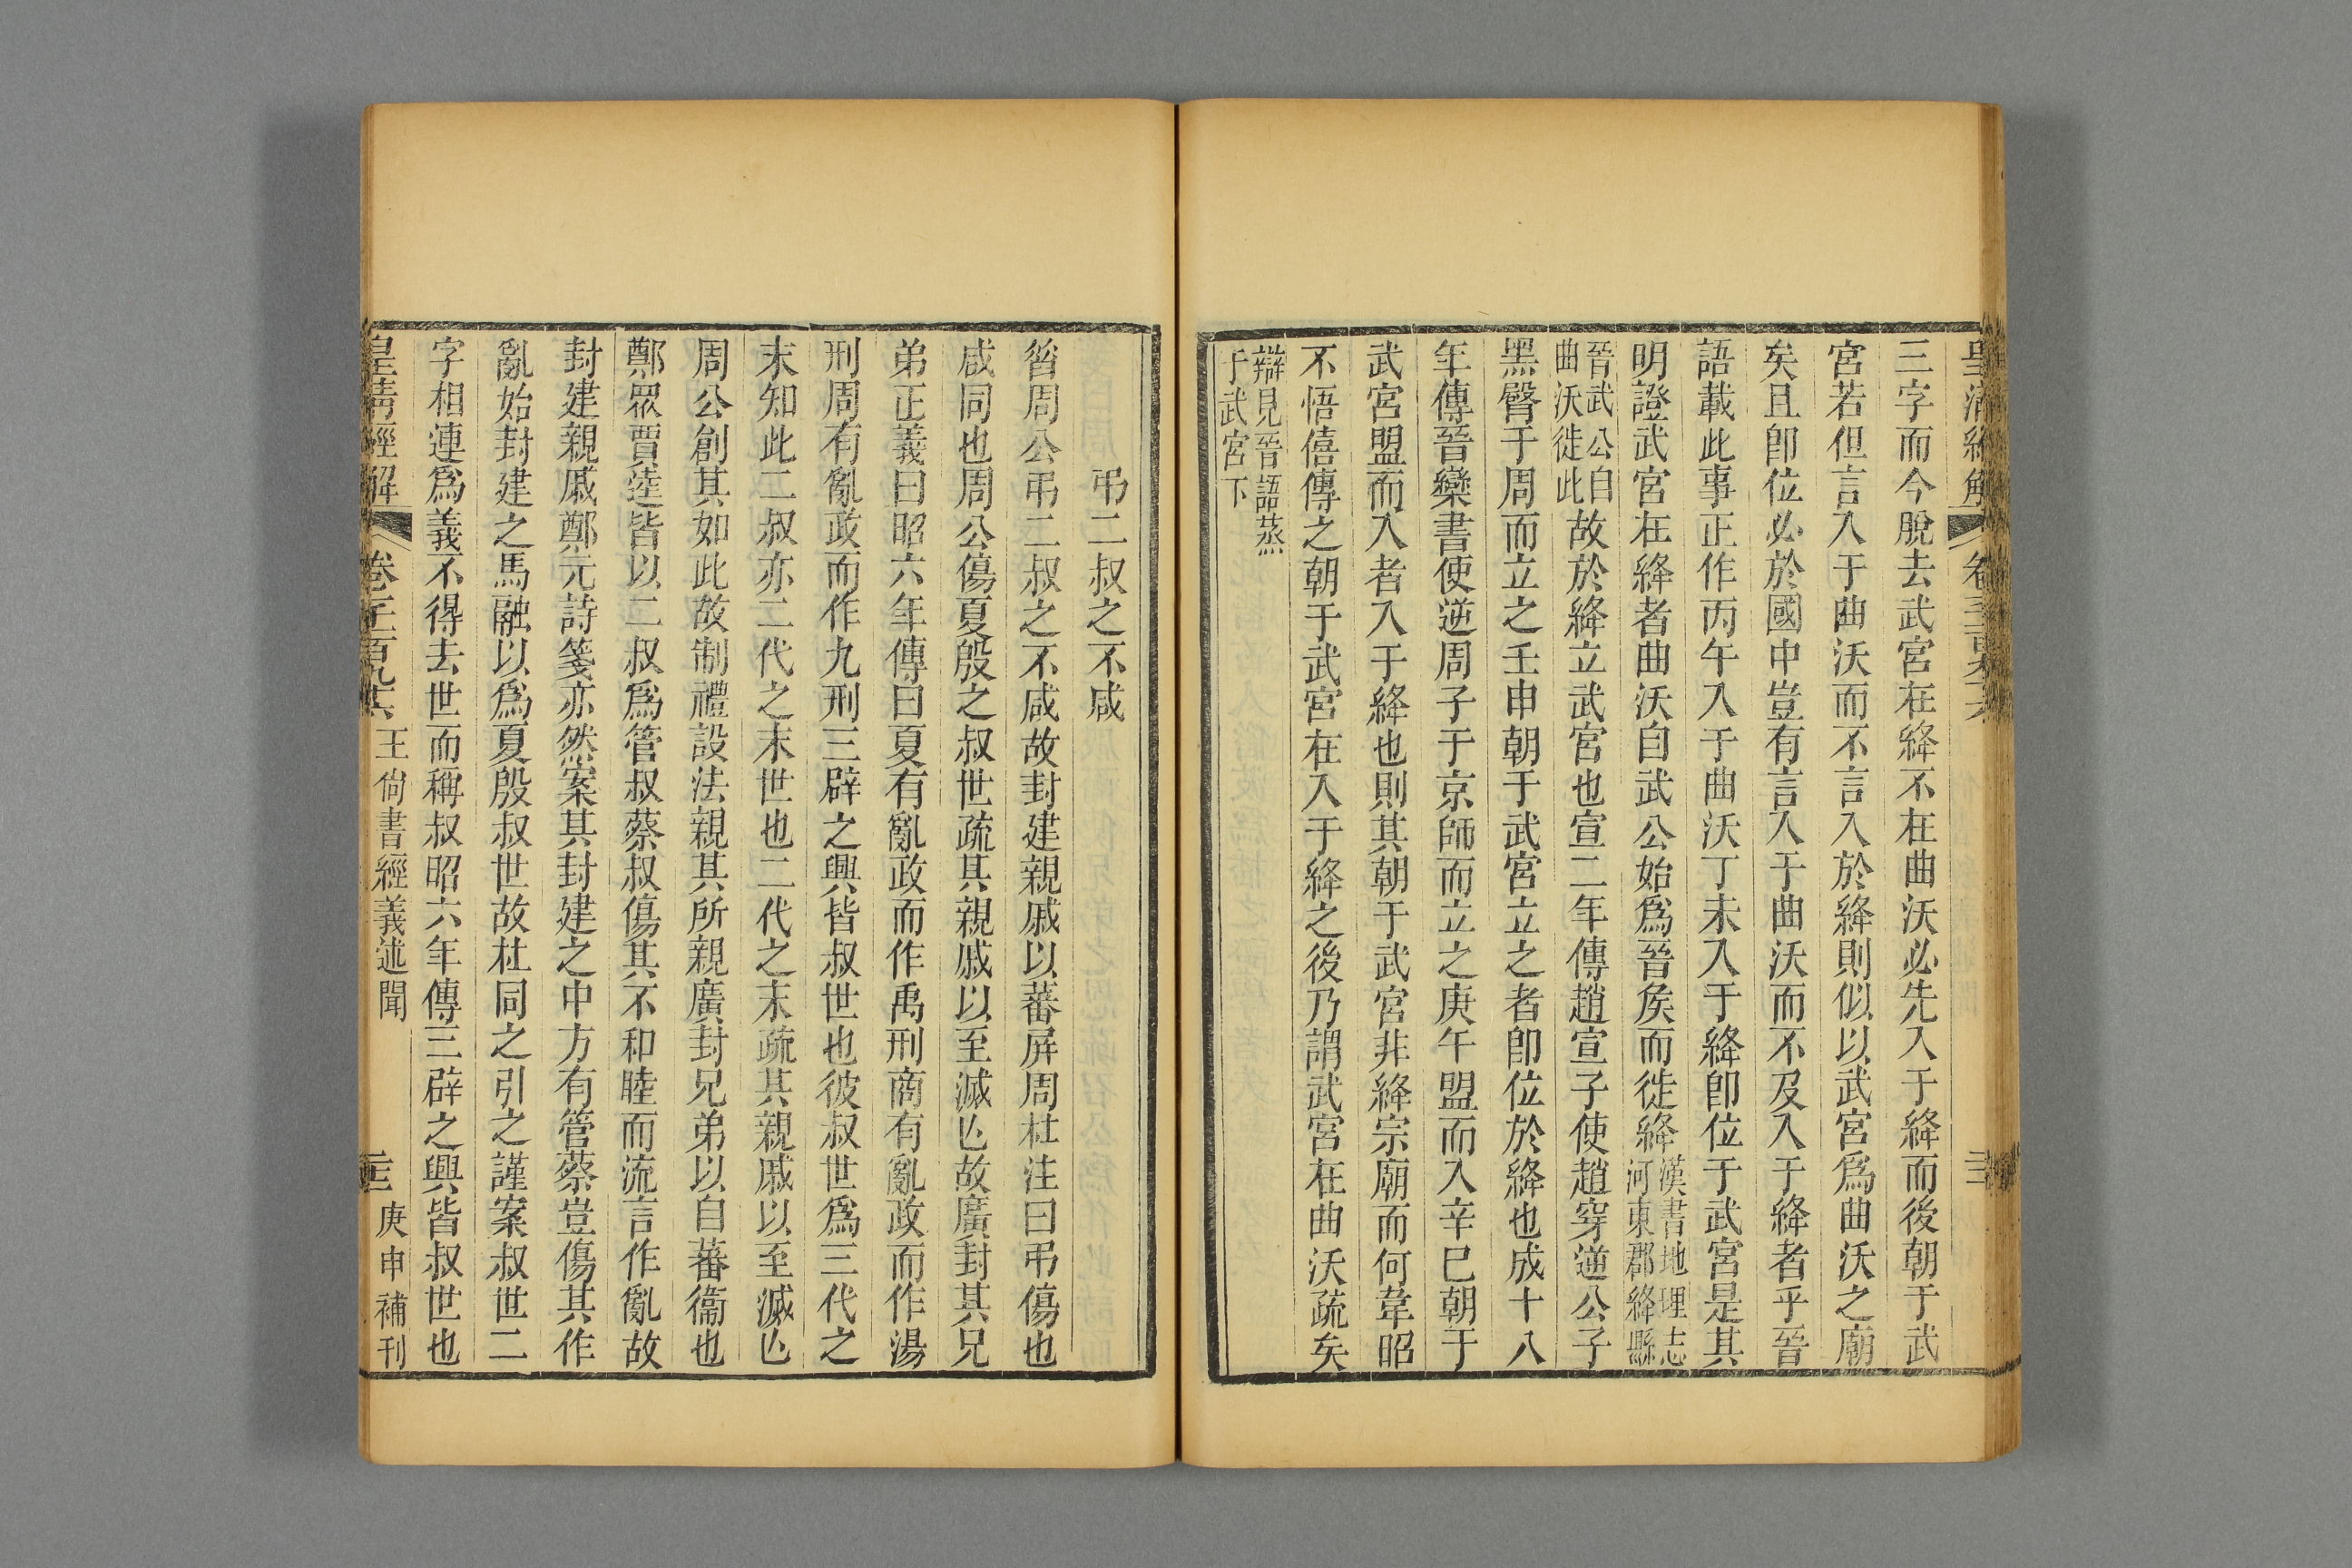 三字而今脫去武宮在絳不在曲沃必先入于絳而後朝于武
宮若但言入于曲沃而不言入於絳則似以武宮爲曲沃之廟
矣且卽位必於國中豈有言入于曲沃而不及入于絳者乎晉
語載此事正作丙午入于曲沃丁未入于絳卽位于武宮是其
明證武宮在絳者曲沃自武公始爲晉矦而徙絳漢書地理志河東郡絳縣
晉武公自曲沃徙此故於絳立武宮也宣二年傳趙宣子使趙穿逆公子
黑臀于周而立之壬申朝于武宮立之者卽位於絳也成十八
年傳晉欒書使逆周子于京師而立之庚午盟而入辛巳朝于
武宮盟而入者入于絳也則其朝于武宮非絳宗廟而何韋昭
不悟僖傳之朝于武宮在入于絳之後乃謂武宮在曲沃疏矣
辯見晉語烝于武宮下
弔二叔之不咸
昝周公弔二叔之不咸故封建親戚以蕃屏周杜注曰弔傷也
咸同也周公傷夏殷之叔世疏其親戚以至滅亾故廣封其兄
弟正義曰昭六年傳曰夏有亂政而作禹刑商有亂政而作湯
刑周有亂政而作九刑三辟之興皆叔世也彼叔世爲三代之
末知此二叔亦二代之末世也二代之末疏其親戚以至滅亾
周公創其如此故制禮設法親其所親廣封兄弟以自蕃衞也
鄭眾賈逵皆以二叔爲管叔蔡叔傷其不和睦而流言作亂故
封建親戚鄭元詩箋亦然案其封建之中方有管蔡豈傷其作
亂始封建之馬融以爲夏殷叔世故杜同之引之謹案叔世二
字相連爲義不得去世而稱叔昭六年傳三辟之興皆叔世也
皇清經解 卷 王尙書經義述聞 庚申補刊